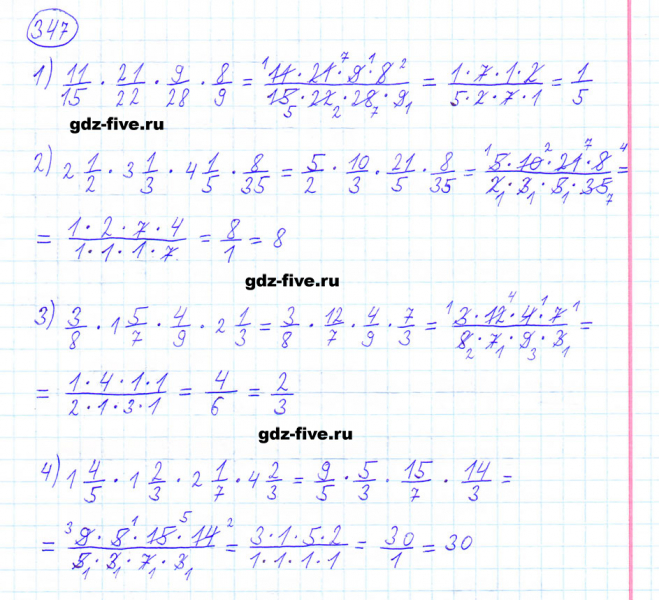 347
1) 11/15 · 21/22 · 9/28 · 8/9 = 11·21·9·8/15·22·28·9 = 1·7·1·2/5·2·7·1 = 1/5
gdz-five.ru
2) 2 1/2 · 3 1/3 · 4 1/5 · 8/35 = 5/2 · 10/3 · 21/5 · 8/35 = 5·10·21·8/2·3·5·35 =
= 1·2·7·4/1·1·1·7 = 8/1 = 8
gdz-five.ru
3) 3/8 · 1 5/7 · 4/9 · 2 1/3 = 3/8 · 12/7 · 4/9 · 7/3 = 3·12·4·7/8·7·9·3 =
= 1·4·1·1/2·1·3·1 = 4/6 = 2/3
gdz-five.ru
4) 1 4/5 · 1 2/3 · 2 1/7 · 4 2/3 = 9/5 · 5/3 · 15/7 · 14/3 =
= 9·5·15·14/5·3·7·3 = 3·1·5·2/1·1·1·1 = 30/1 = 30